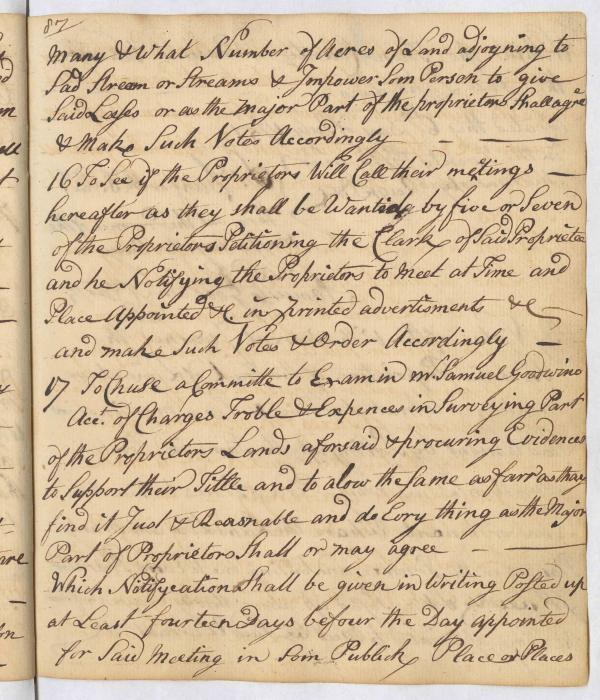 87
many & What Number of Acres of Land adjoyning to
Sad Stream or Streams & Impower Som Person to give
Said Leases or as the major Part of the proprietors Shall agre
& Make Such Votes Accordingly
16 To See if the Proprietors Will Call their meetings
hereafter as they shall be Wanting by five or Seven
of the Proprietors Petitioning the Clark of Said Proprietee
and he Notifying the Proprietors to Meet at Time and
Place Appointed &c in Printed advertisments &c
and make Such Votes & Order Accordingly
17 To Chuse a Committe to Examin mr. Samuel Goodwins
Acct. of Charges Troble & Expences in Surveying Part
of the Proprietors Lands aforsaid & procuring Evidences
to Support their Tittle and to alow the Same as farr as thay
find it Just & Reasnable and do Eory thing as the Major
Part of Proprietors Shall or may agree
Which Notifycation Shall be given in Writing Posted up
at Least fourteen Days befour the Day appointed
for Said Meeting in Som Publick Place or Places